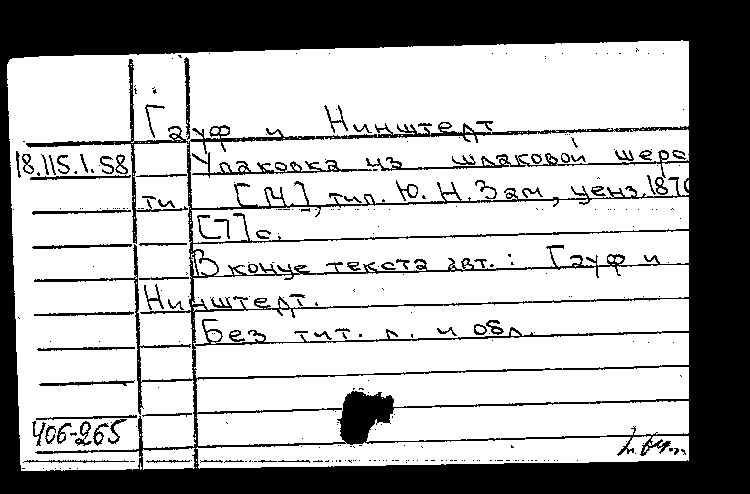 Гауф и Нинштедт
18.115.1.58 Упаковка из шлаковой шерс
ти. [М.], тип. Ю. Н. Зам, ценз. 1870
[7] с.
В конце текста авт.: Гауф и
Нинштедт.
Без тит. л. и обл.
406-265